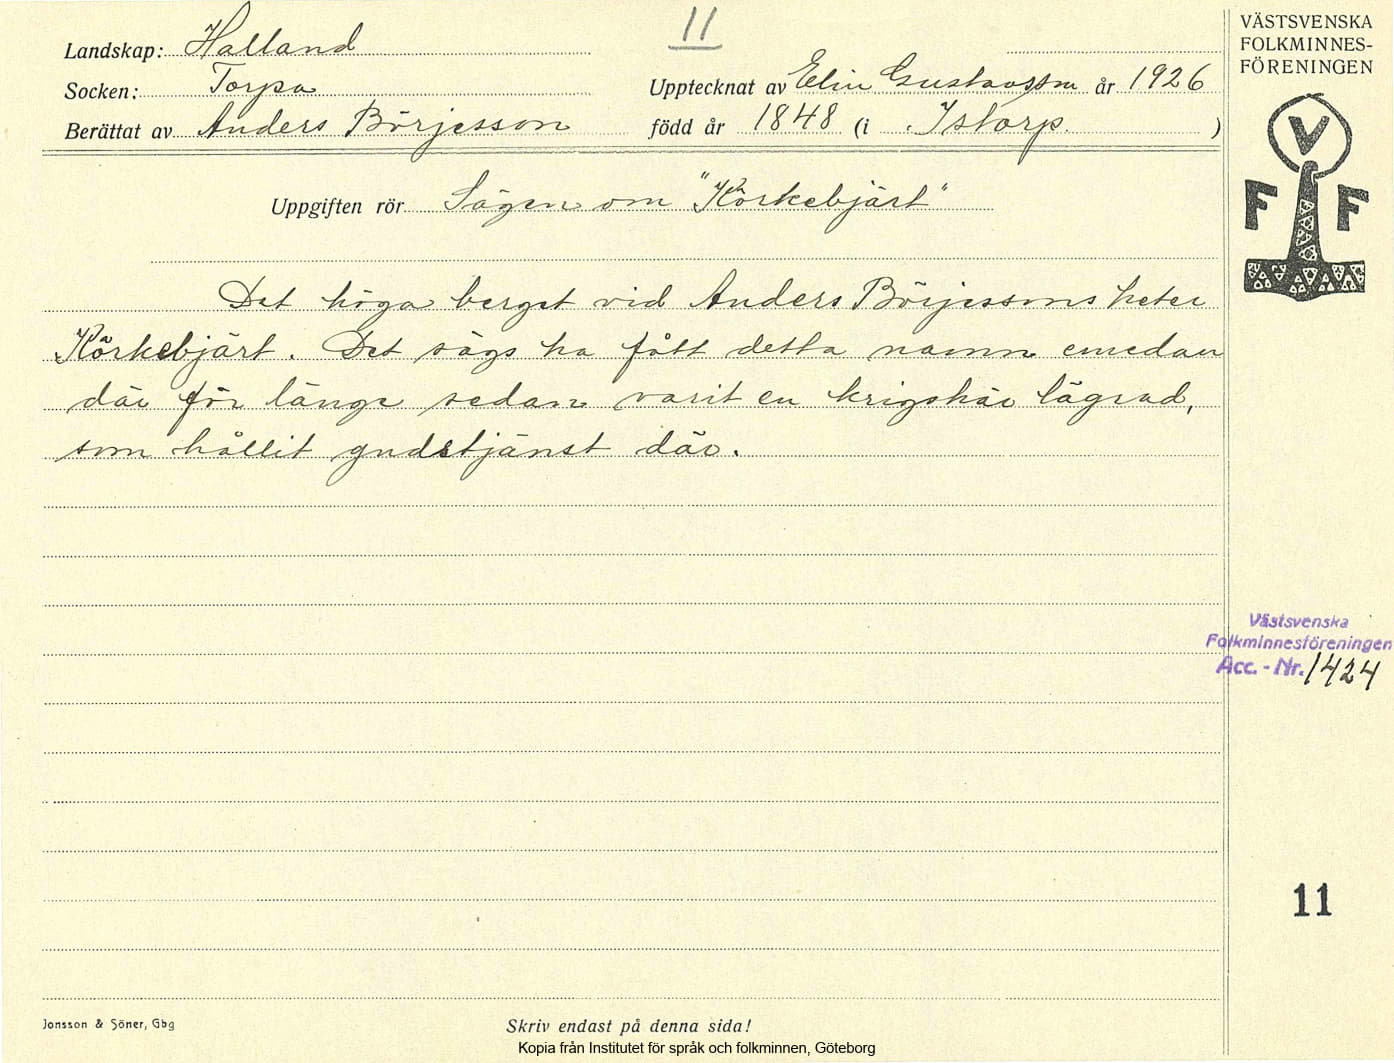 11
VÄSTSVENSKA
FOLKMINNES-
FÖRENINGEN
Landskap: Halland
Socken: Torpa
Upptecknat av Elin Gustavsson år 1926
Berättat av Anders Börjesson
född år 1848 (i Istorp. )
V
F F
Uppgiften rör Sägen om "Körkebjärt"
Det höga berget vid Anders Börjessons heter
Körkebjärt. Det sägs ha fått detta namn emedan
där för länge sedan varit en krigshär lägrad,
som hållit gudstjänst där.
Västsvenska
Folkminnesföreningen
Acc. - Nr. 1424
11
Jonsson & Söner, Gbg
Skriv endast på denna sida!
Kopia från Institutet för språk och folkminnen, Göteborg